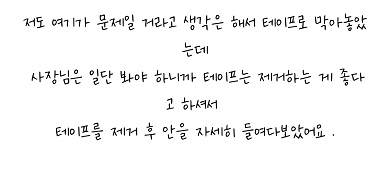 저도 여기가 문제일 거라고 생각은 해서 테이프로 막아놓았
는데
사장님은 일단 봐야 하니까 테이프는 제거하는 게 좋다
고 하셔서
테이프를 제거 후 안을 자세히 들여다보았어요 .